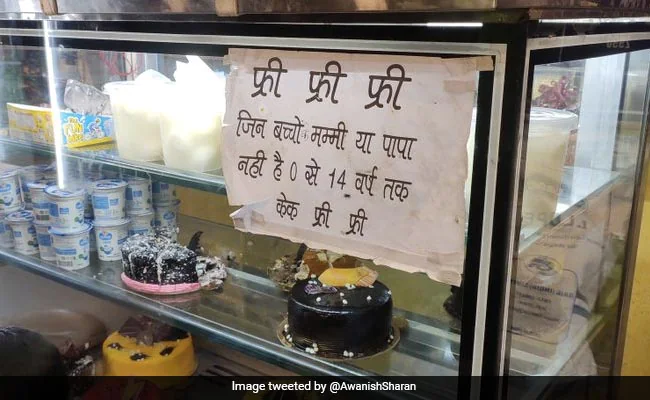 फ्री फ्री फ्री
जिन बच्चों मम्मी या पापा
नही है 0 से 14 वर्ष तक
केक फ्री फ्री
Image tweeted by @AwanishSharan